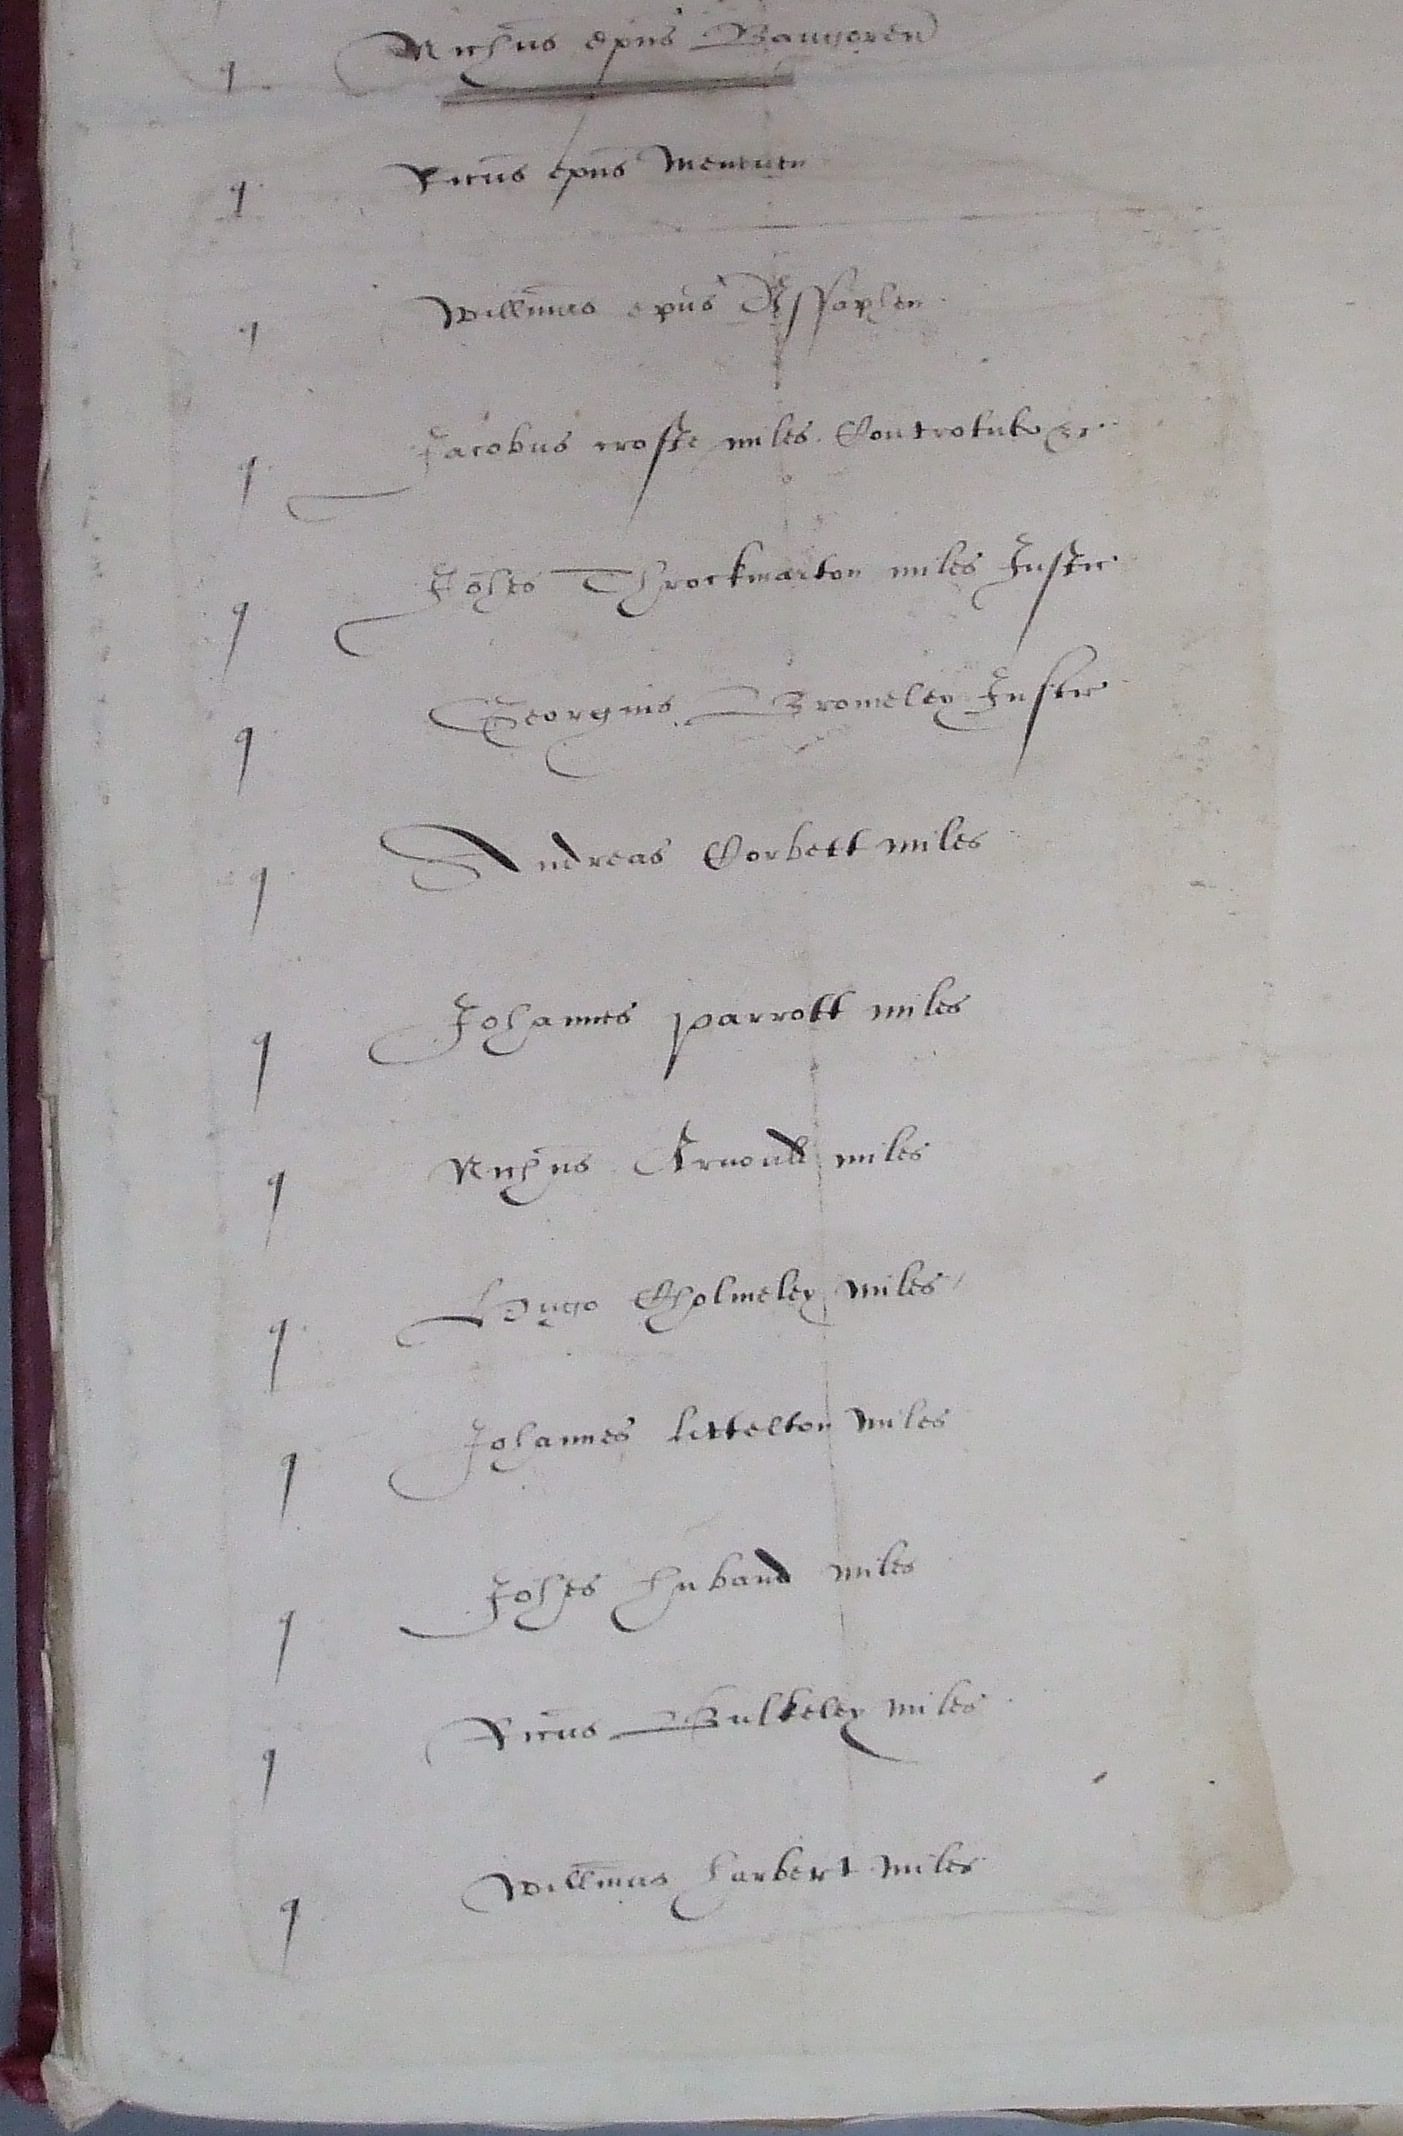 q Nichus epus Bangoren
q Ricus epus Meneven
q Willmus epus Assaphen
q Jacobus croft miles Controtulator &c
q Johes Throckmarton miles Justic
q Georgius Bromeley Justic
q Andreas Corbett miles
q Johannes parrott miles
q Nichus Arnould miles
q Hugo Cholmeley miles
q Johannes littelton miles
q Johes huband miles
q Ricus Bulkeley miles
q Willmus harbert miles